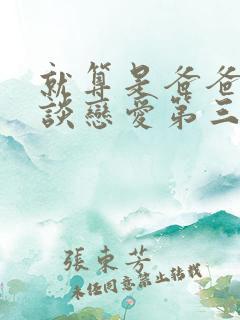 就算是爸爸
談戀愛第三
張東芳
未经同意禁止转载